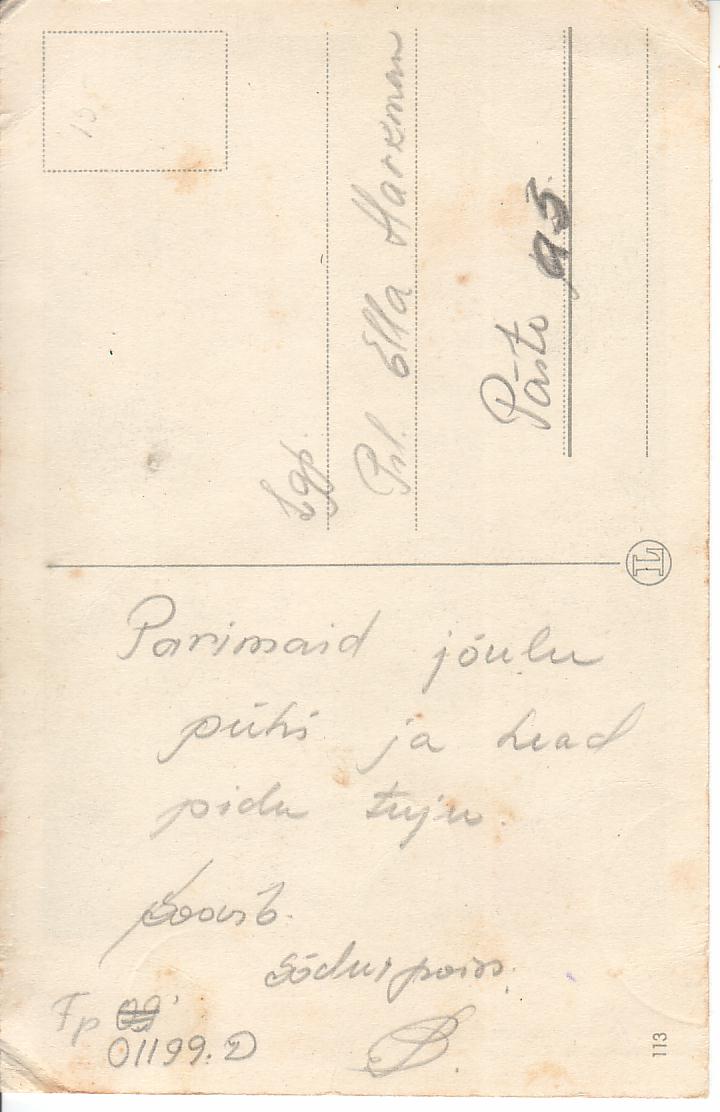 15
Lgp.
Prl. Ella Harkman
Päste 95.
L
Parimaid jõulu
pühi ja head
pidu tuju.
Soovib.
Sõdur poiss.
Fp
01199. D
113